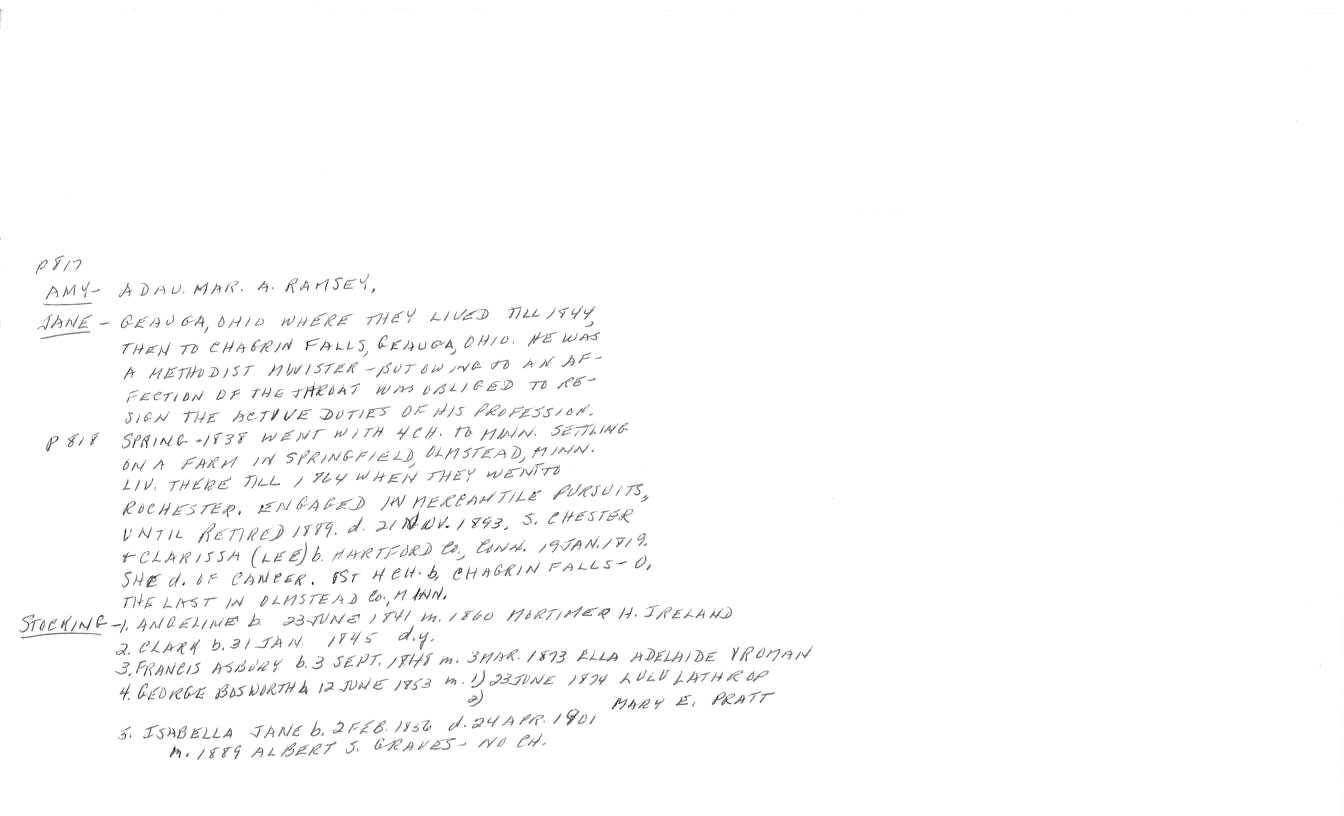 P 817
AMY - A DAU. MAR. A. RAMSEY,
JANE - GEAUGA, OHIO WHERE THEY LIVED TILL 1844,
THEN TO CHAGRIN FALLS, GEAUGA, OHIO. HE WAS
A METHODIST MINISTER - BUT OWING TO AN AF-
FECTION OF THE THROAT WAS OBLIGED TO RE-
SIGN THE ACTIVE DUTIES OF HIS PROFESSION.
P 818 SPRING - 1838 WENT WITH 4 CH. TO MINN. SETTLING
ON A FARM IN SPRINGFIELD, OLMSTEAD, MINN.
LIV. THERE TILL 1864 WHEN THEY WENT TO
ROCHESTER. ENGAGED IN MERCANTILE PURSUITS,
UNTIL RETIRED 1889. d. 21 NOV. 1893. S. CHESTER
+ CLARISSA (LEE) b. HARTFORD Co., CONN. 19 JAN. 1819.
SHE d. OF CANCER. 1ST 4 CH. b. CHAGRIN FALLS - O.
THE LAST IN OLMSTEAD Co., MINN.
STOCKING - 1. ANGELINE b. 23 JUNE 1841 m. 1860 MORTIMER H. IRELAND
2. CLARK b. 31 JAN 1845 d.y.
3. FRANCIS ASBURY b. 3 SEPT. 1848 m. 3 MAR. 1873 ELLA ADELAIDE VROMAN
4. GEORGE BOSWORTH b 12 JUNE 1853 m. 1) 23 JUNE 1874 LULU LATHROP
2) MARY E. PRATT
5. ISABELLA JANE b. 2 FEB. 1856 d. 24 APR. 1901
m. 1889 ALBERT S. GRAVES - NO CH.